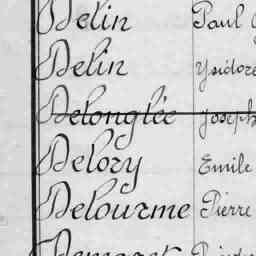 Delin Paul
Delin Ysidore
Delonglée Joseph
Delory Emile
Delourme Pierre
Demaret